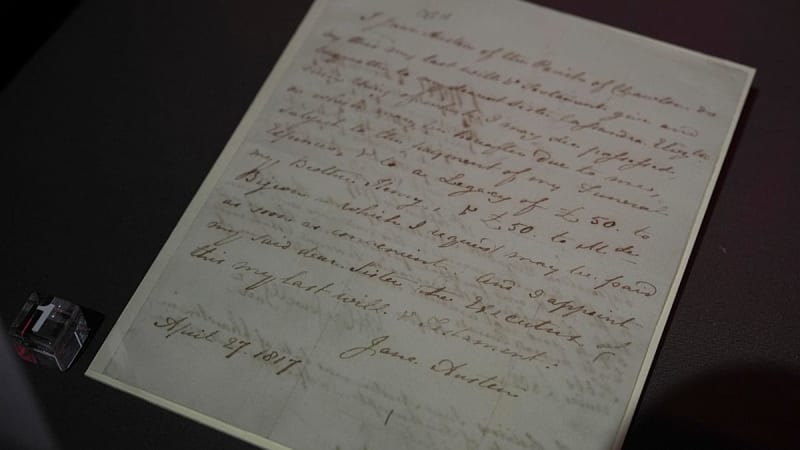 I Jane Austen of the Parish of Chawton do
by this my last will & Testament give and
bequeath to my dearest Sister Cassandra Elizth
every thing of which I may die possessed,
or which may be hereafter due to me,
subject to the payment of my Funeral
Expences, & to a Legacy of £50. to
my Brother Henry, & £50. to Mde
Bigeon — which I request may be paid
as soon as convenient. And I appoint
my said dear Sister the Executrix of
this my last will & Testament.
Jane Austen
April 27. 1817
1